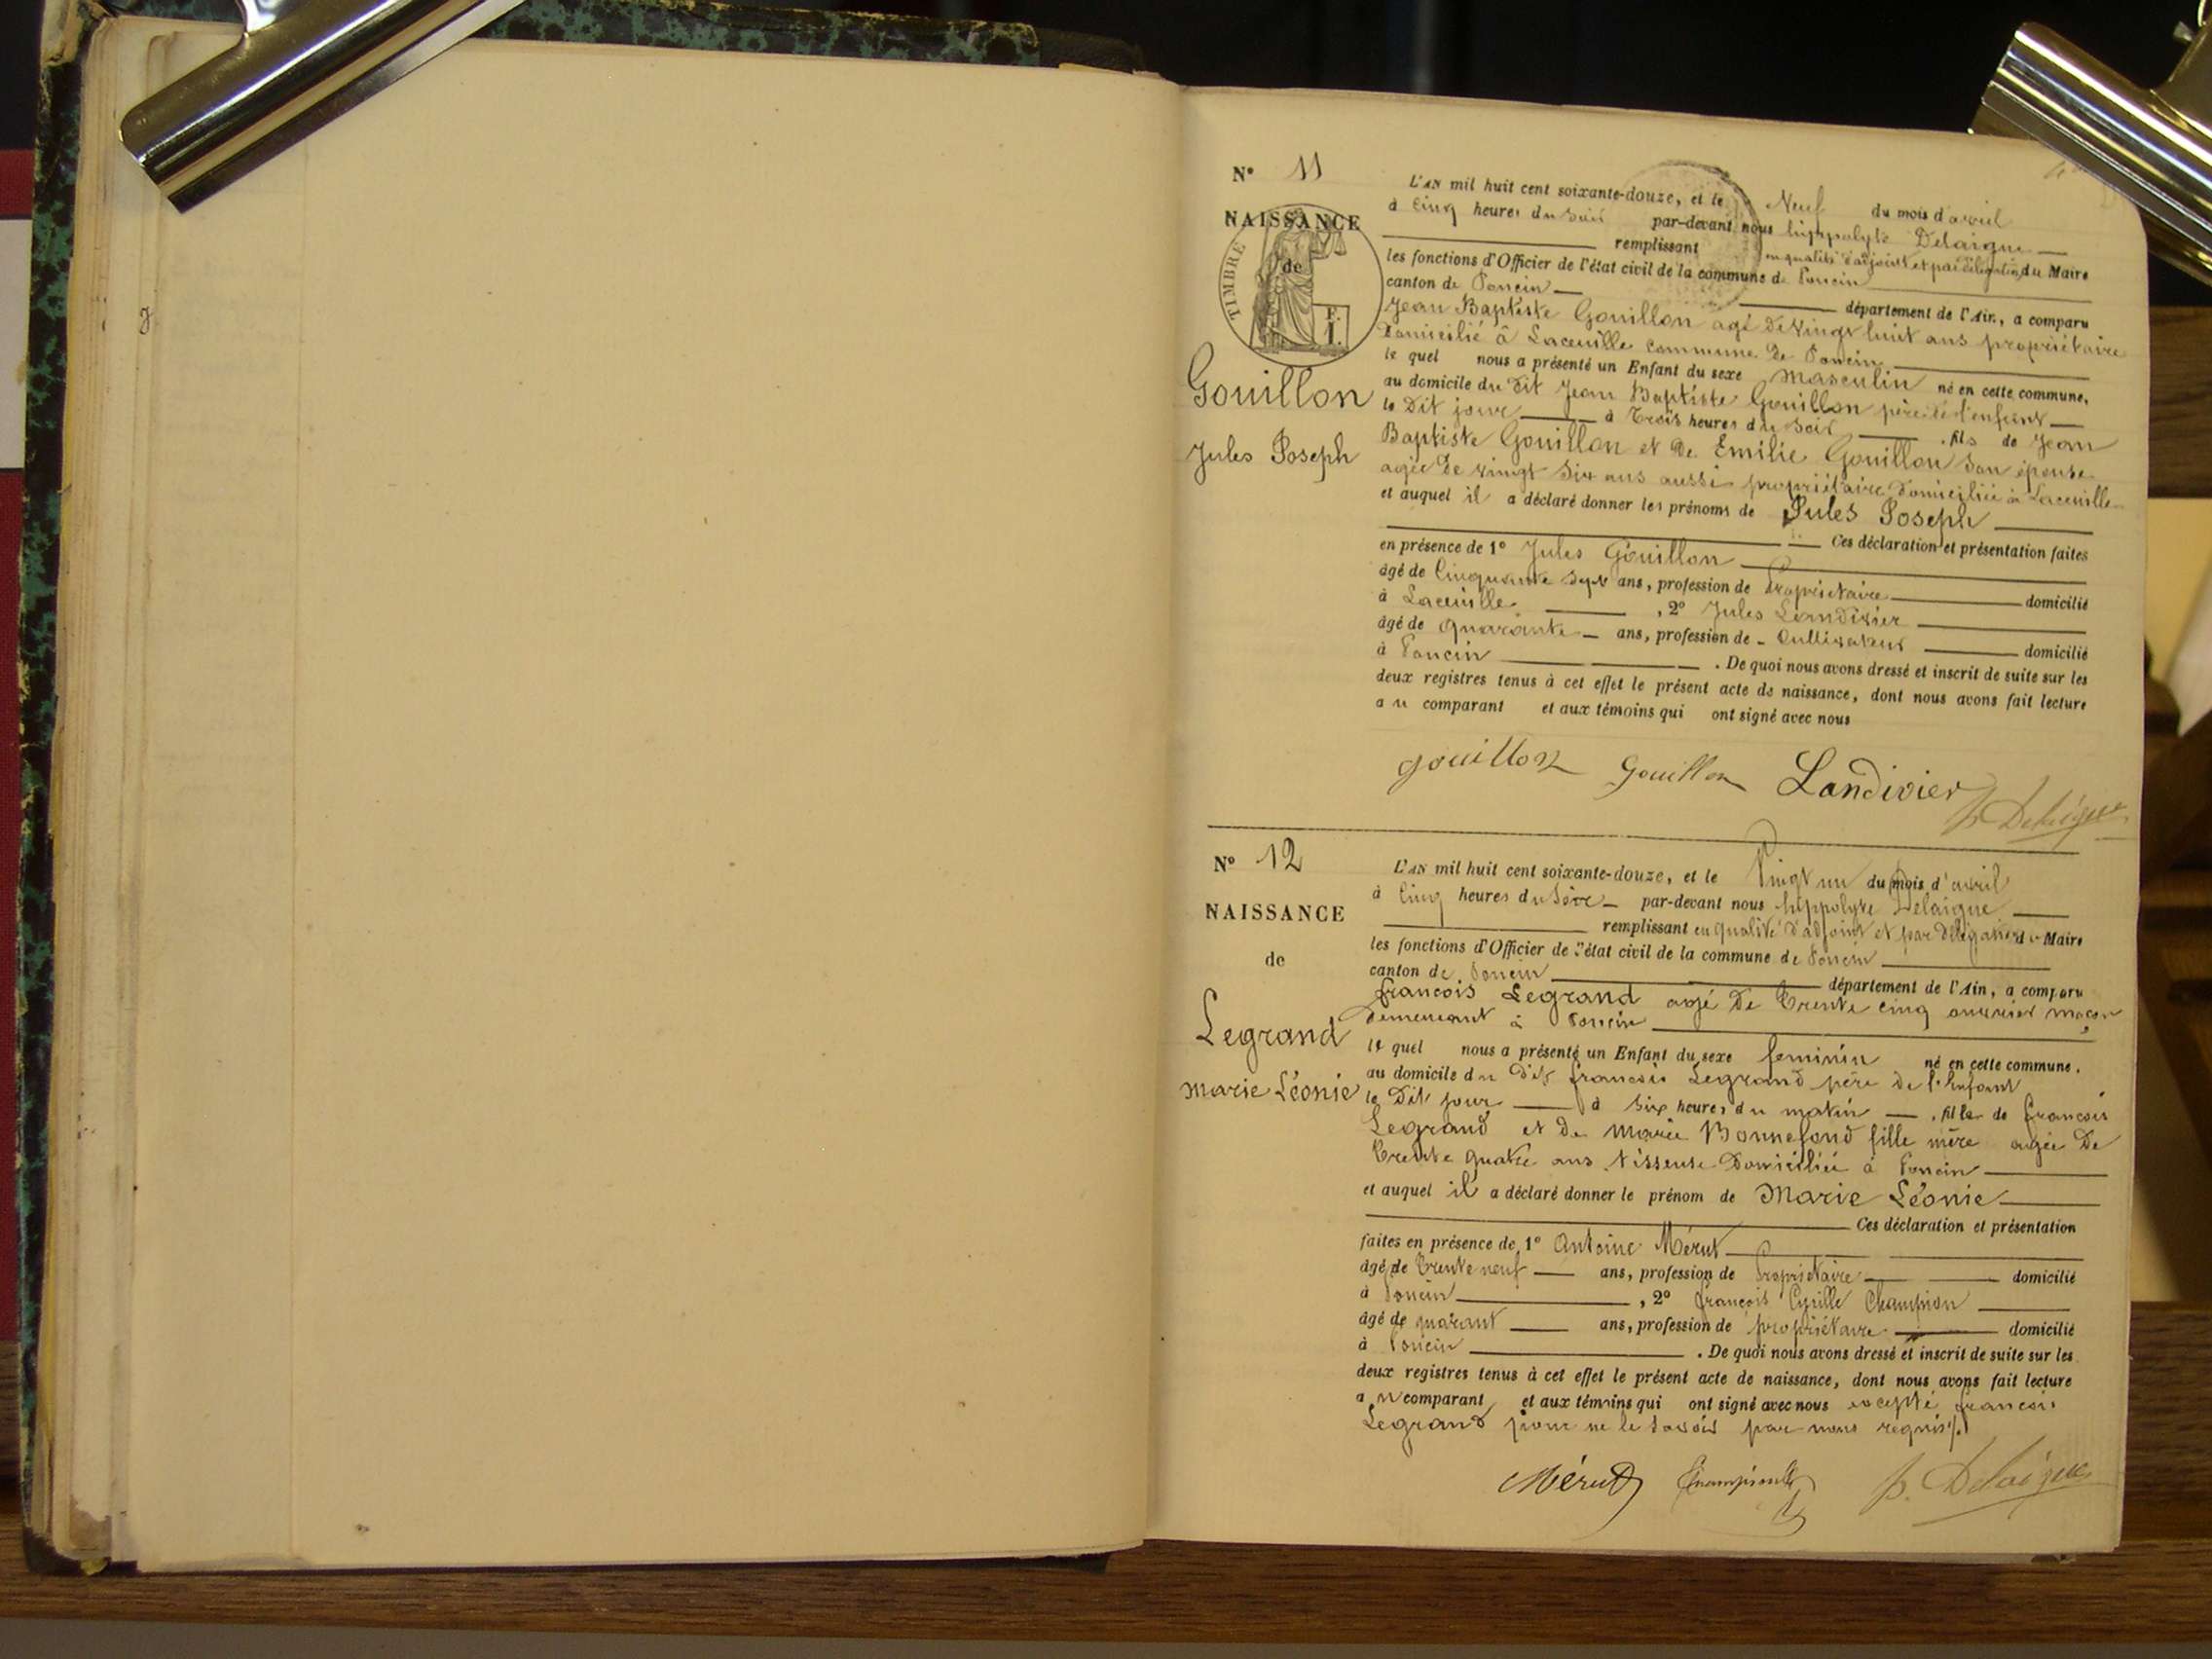 N° 11
NAISSANCE
de
TIMBRE
Gouillon
Jules Joseph
L'AN mil huit cent soixante-douze, et le Neuf du mois d'avril
à Cinq heures du Soir par-devant nous hippolyte Delaigue
remplissant en qualité d'adjoint et par délégation du Maire
les fonctions d'Officier de l'état civil de la commune de Poncin
canton de Poncin département de l'Ain, a comparu
Jean Baptiste Gouillon agé de vingt huit ans propriétaire
Domicilié à Laceuille commune de Poncin
le quel nous a présenté un Enfant du sexe Masculin né en cette commune,
au domicile du dit Jean Baptiste Gouillon père de l'enfant
le Dit jour à Trois heures du Soir, fils de Jean
Baptiste Gouillon et de Emilie Gouillon Son épouse
agée de vingt Six ans aussi propriétaire Domiciliée à Laceuille
et auquel il a déclaré donner les prénoms de Jules Joseph
Ces déclaration et présentation faites
en présence de 1° Jules Gouillon
âgé de Cinquante Sept ans, profession de Propriétaire domicilié
à Laceuille, 2° Jules Landivier
âgé de quarante ans, profession de Cultivateur domicilié
à Poncin. De quoi nous avons dressé et inscrit de suite sur les
deux registres tenus à cet effet le présent acte de naissance, dont nous avons fait lecture
au comparant et aux témoins qui ont signé avec nous
gouillon Gouillon Landivier h. Delaigue
N° 12
NAISSANCE
de
Legrand
Marie Léonie
L'AN mil huit cent soixante-douze, et le Vingt un du mois d'avril
à Cinq heures du Soir par-devant nous hippolyte Delaigue
remplissant en qualité d'adjoint et par délégation du Maire
les fonctions d'Officier de l'état civil de la commune de Poncin
canton de Poncin département de l'Ain, a comparu
francois Legrand agé de Trente cinq ouvrier maçon
demeurant à Poncin
le quel nous a présenté un Enfant du sexe feminin né en cette commune,
au domicile du dit francois Legrand père de l'Enfant
le Dit jour à Six heures du matin, fille de francois
Legrand et de Marie Bonnefond fille mère agée de
Trente quatre ans Tisseuse Domiciliée à Poncin
et auquel il a déclaré donner le prénom de Marie Léonie
Ces déclaration et présentation
faites en présence de 1° Antoine Mérut
âgé de Trente neuf ans, profession de Propriétaire domicilié
à Poncin, 2° françois Cyrille Champion
âgé de quarant ans, profession de propriétaire domicilié
à Poncin. De quoi nous avons dressé et inscrit de suite sur les
deux registres tenus à cet effet le présent acte de naissance, dont nous avons fait lecture
au comparant et aux témoins qui ont signé avec nous excepté francois
Legrand pour ne le savoir par nous requis
Mérut Champion h. Delaigue